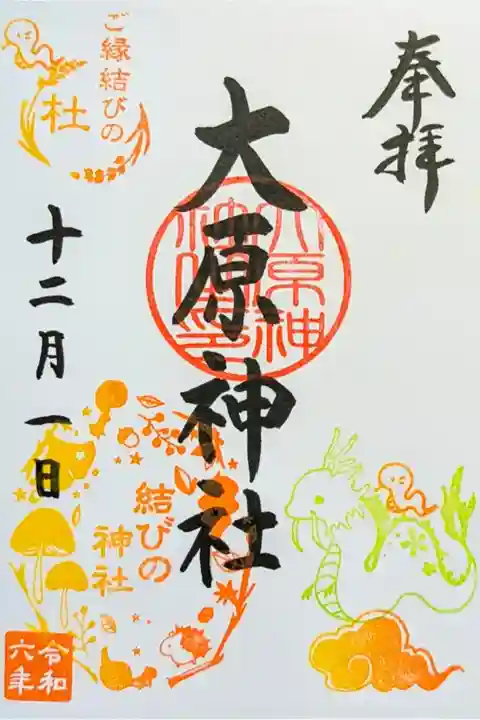 奉拝
大原神社
大原神
十二月一日
ご縁結びの
杜
結びの
神社
令和
六年